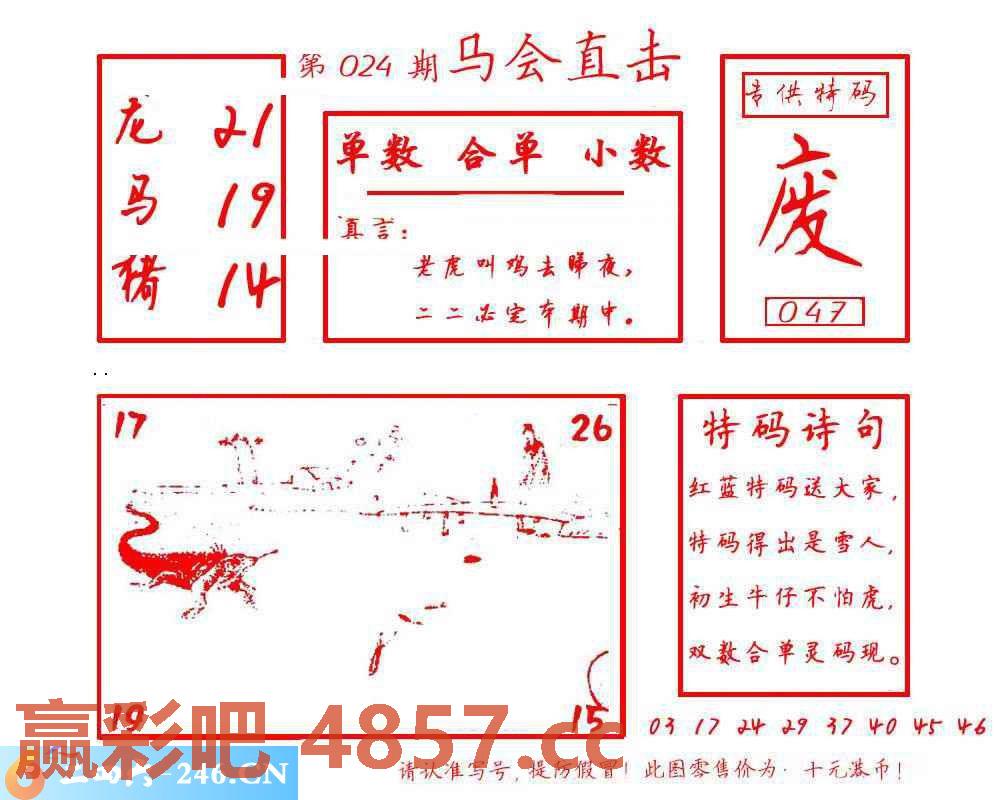 第 024 期 马会直击
龙 21
马 19
猪 14
单数 合单 小数
真言:
老虎叫鸡去睇夜,
二二必定本期中。
专供特码
废
047
17
26
19
15
特码诗句
红蓝特码送大家,
特码得出是雪人,
初生牛仔不怕虎,
双数合单灵码现。
03 17 24 29 37 40 45 46
赢彩吧 4857.cc
-246.CN
请认准写号,提防假冒!此图零售价为·十元港币!